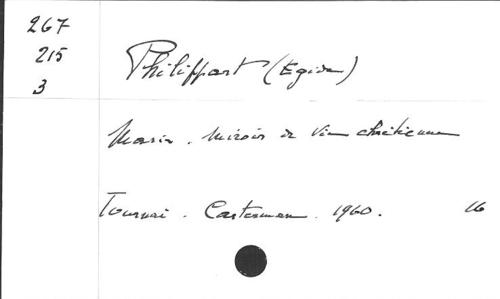 267
215
3
Philippart (Egide)
Marie. Miroir de Vie chrétienne
Tournai. Casterman. 1960. 16